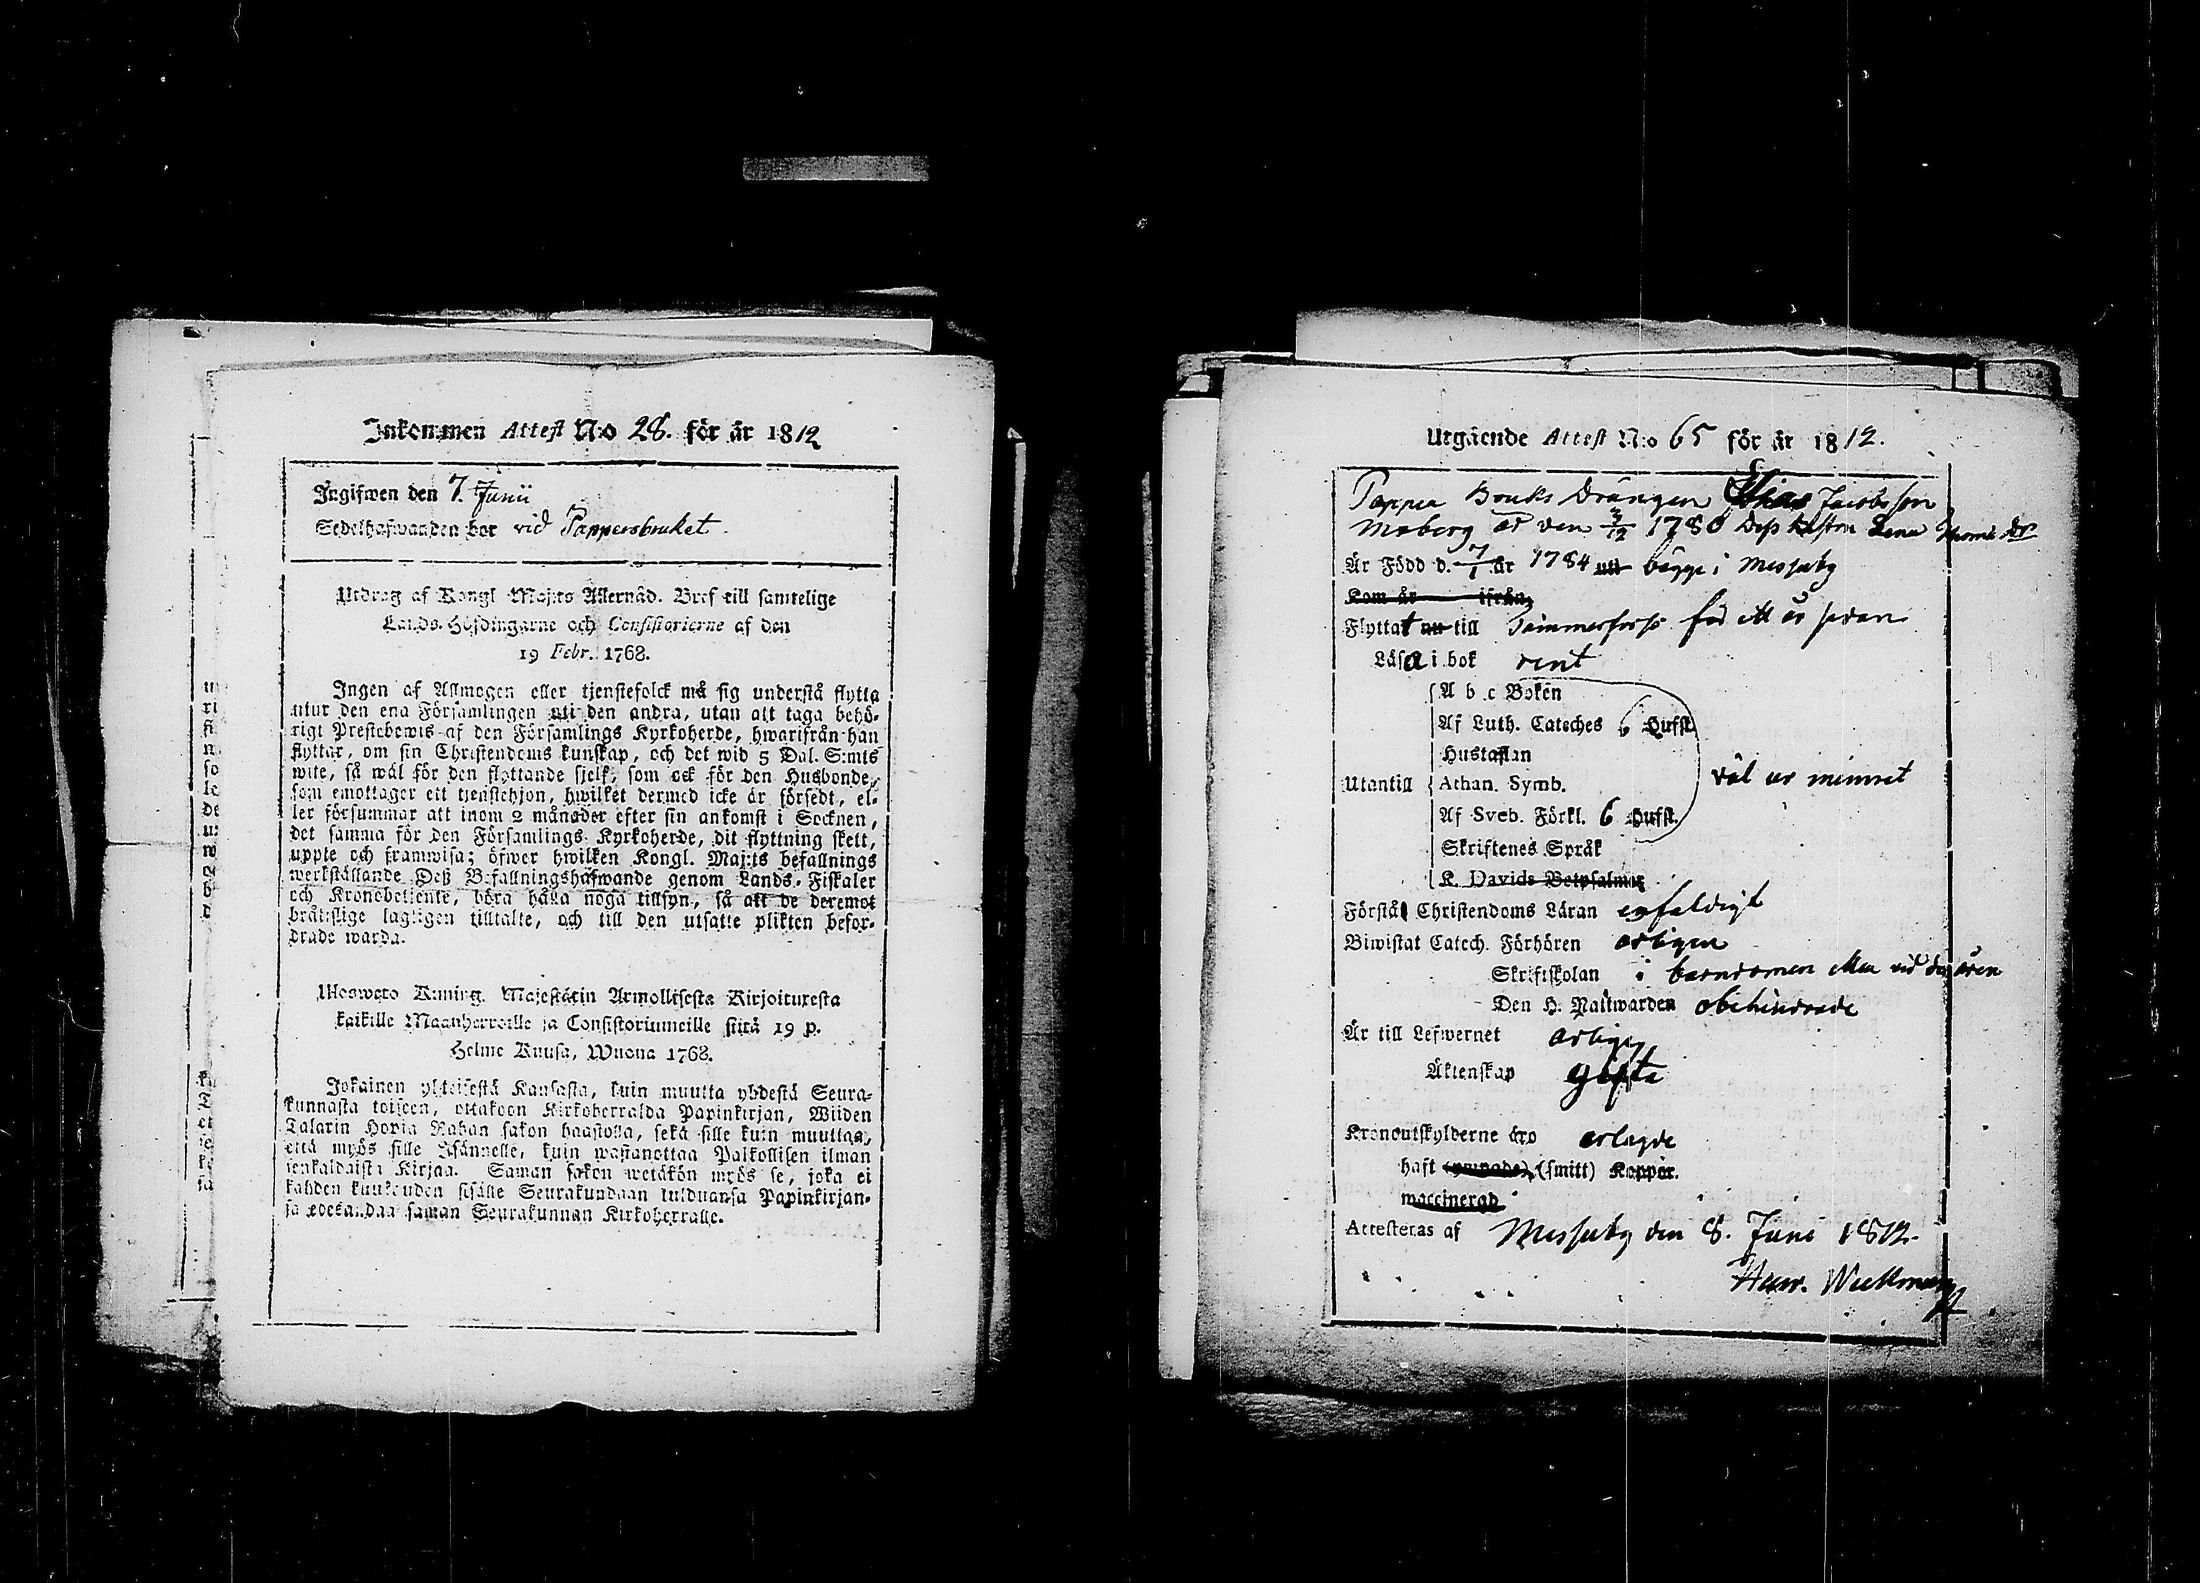 Inkommen Attest N:o 28. för år 1812
Ingifwen den 7. Junii
Sedelhafwanden bor vid Pappersbruket.
Utdrag af Kongl. Maj:ts Allernåd. Bref till samtelige
Lands-Höfdingarne och Consistorierne af den
19 Febr. 1768.
Ingen af Allmogen eller tjenstefolck må sig understå flytta
utur den ena Församlingen uti den andra, utan att taga behö-
rigt Prestebewis af den Församlings Kyrkoherde, hwarifrån han
flyttar, om sin Christendoms kunskap, och det wid 5 Dal. S:mts
wite, så wäl för den flyttande sjelf, som ock för den Husbonde,
som emottager ett tjenstehjon, hwilket dermed icke är försedt, el-
ler försummar att inom 2 månader efter sin ankomst i Socknen,
det samma för den Församlings Kyrkoherde, dit flyttning skett,
uppte och framwisa; öfwer hwilken Kongl. Maj:ts befallnings
werkställande Deß Befallningshafwande genom Lands-Fiskaler
och Kronobetjente, böra hålla noga tillsyn, så att de deremot
bråtslige lagligen tilltalte, och till den utsatte plikten befor-
drade warda.
Ulosweto Kuning. Majestätin Armollisesta Kirjoituxesta
kaikille Maanherroille ja Consistoriumeille siitä 19 p.
Helme Kuusa, Wuona 1768.
Jokainen yhteisestä Kansasta, kuin muutta yhdestä Seura-
kunnasta toiseen, ottakoon Kirkoherralda Papinkirjan, Wiiden
Talarin Hopia Rahan sakon haastolla, sekä sille kuin muuttaa,
että myös sille Isännelle, kuin wastanottaa Palkollisen ilman
senkaldaista Kirjaa. Saman sakon wetäkön myös se, joka ei
kahden kuukauden sisälle Seurakundaan tulduansa Papinkirjan-
sa edesandaa saman Seurakunnan Kirkoherralle.
Utgående Attest N:o 65 för år 1812.
Bruks Drängen Elias Jacobsson
Moberg är den 3/12 1780 Dess Hustru Lena
Är Född d. 7/1 år 1784 uti bägge i Messuby
Kom år ifrån
Flyttat nu till Tammerfors för ett år sedan
Läsa i bok rent
A b c Boken
Af Luth. Cateches 6 Hufst.
Hustaflan
Utantill Athan. Symb. väl ur minnet
Af Sveb. Förkl. 6 Hufst.
Skriftenes Språk
K. Davids Botpsalmer
Förstå Christendoms Läran enfaldigt
Biwistat Catech. Förhören ärligen
Skriftskolan i barndomen
Den H. Nattwarden obehindrade
Är till Lefwernet ärlige
Äktenskap gifta
Kronoutskylderne äro erlagde
haft (ympade) (smitt) Koppor.
waccinerad
Attesteras af Messuby den 8. Juni 1812.
Henr.